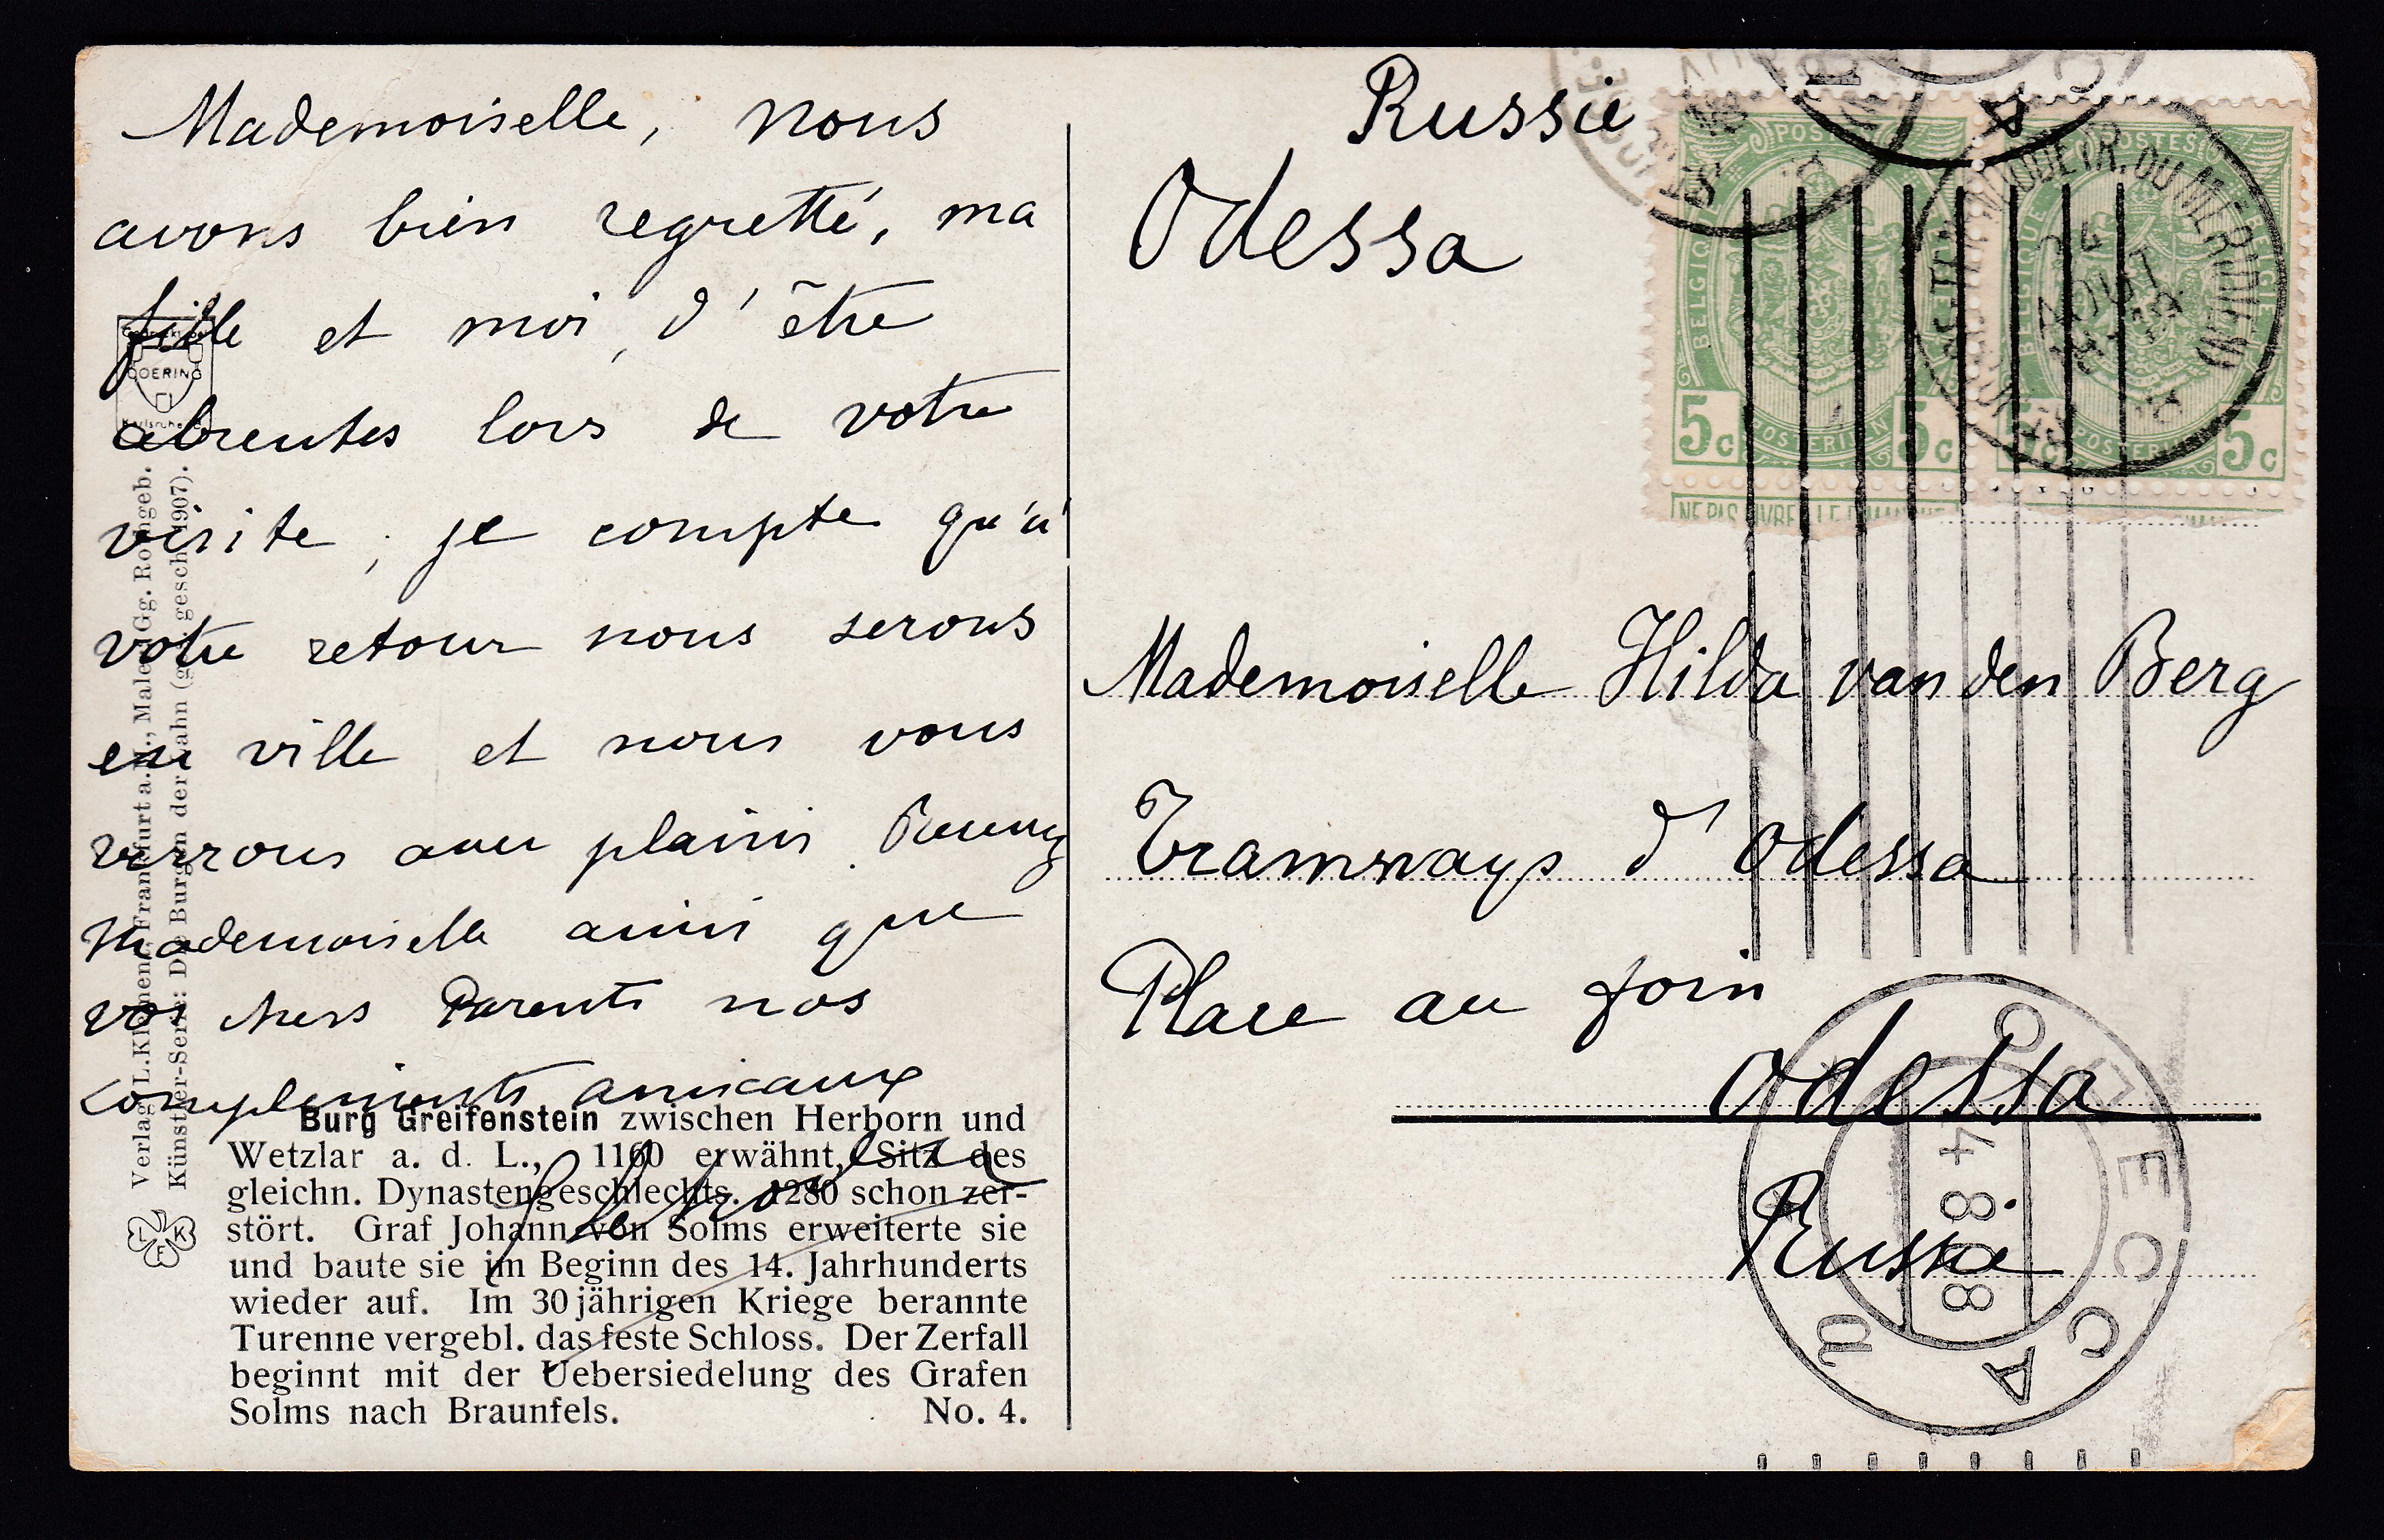 Mademoiselle, nous
avons bien regretté, ma
fille et moi, d'être
absentes lors de votre
visite, je compte qu'à
votre retour nous serons
en ville et nous vous
verrons avec plaisir.
Mademoiselle ainsi que
vos chers Parents nos
compliments amicaux
Russie
Odessa
Mademoiselle Hilda van den Berg
Tramways d'Odessa
Place au foin
Odessa
Russie
BELGIQUE POSTES BELGIE
POSTERIJEN
5c 5c
BELGIQUE POSTES BELGIE
POSTERIJEN
5c 5c
NE PAS LIVRER LE DIMANCHE
AOUT
ОДЕССА
4 8 08
DOERING
Karlsruhe
Verlag L. Klement, Frankfurt a. M., Maler Gg. Rohngeb.
Künstler-Serie: Die Burgen der Lahn (ges. gesch. 1907).
L K F
Burg Greifenstein zwischen Herborn und
Wetzlar a. d. L., 1160 erwähnt, Sitz des
gleichn. Dynastengeschlechts. 1280 schon zer-
stört. Graf Johann von Solms erweiterte sie
und baute sie im Beginn des 14. Jahrhunderts
wieder auf. Im 30 jährigen Kriege berannte
Turenne vergebl. das feste Schloss. Der Zerfall
beginnt mit der Uebersiedelung des Grafen
Solms nach Braunfels. No. 4.